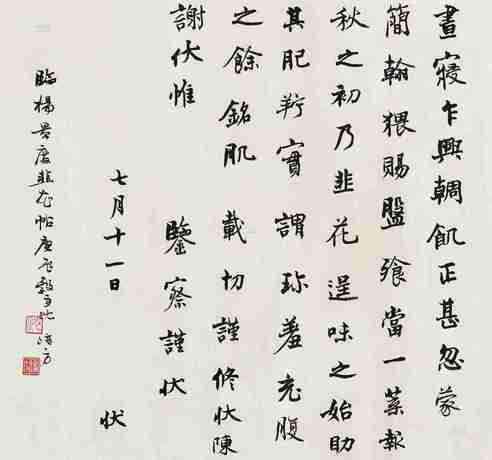 晝寢乍興輖飢正甚忽蒙
簡翰猥賜盤飱當一葉報
秋之初乃韭花逞味之始助
其肥羜實謂珍羞充腹
之餘銘肌載切謹修狀陳
謝伏惟
鑒察謹狀
七月十一日
狀
臨楊景度韭花帖庚辰